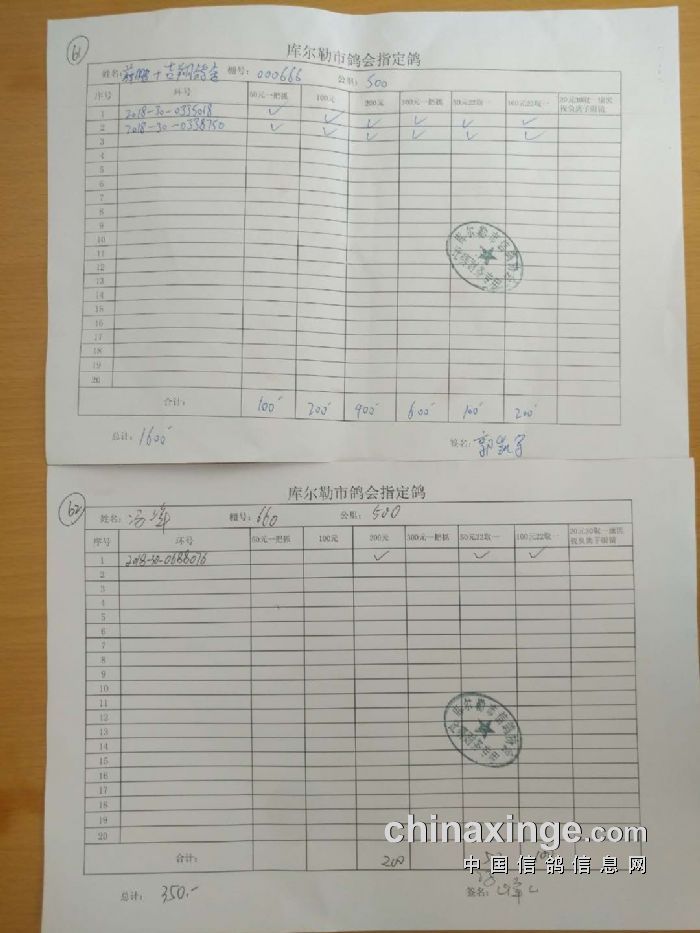 61
库尔勒市鸽会指定鸽
姓名: 棚号: 000666 公里: 500
序号 环号 50元一把抓 100元 200元 300元一把抓 50元22取一 100元22取一
1 2018-30-0335018 ✓ ✓ ✓ ✓ ✓ ✓
2 2018-30-0338750 ✓ ✓ ✓ ✓ ✓ ✓
3
4
5
6
7
8
9
10
11
12
13
14
15
16
17
18
19
20
合计: 100 200 400 600 100 200
总计: 1600 签名:
62
库尔勒市鸽会指定鸽
姓名: 冯 棚号: 660 公里: 500
序号 环号 50元一把抓 100元 200元 300元一把抓 50元22取一 100元22取一
1 2018-30-0688016 ✓ ✓ ✓
2
3
4
5
6
7
8
9
10
11
12
13
14
15
16
17
18
19
20
合计: 200 50 100
总计: 350.- 签名:
chinaxinge.com
中国信鸽信息网